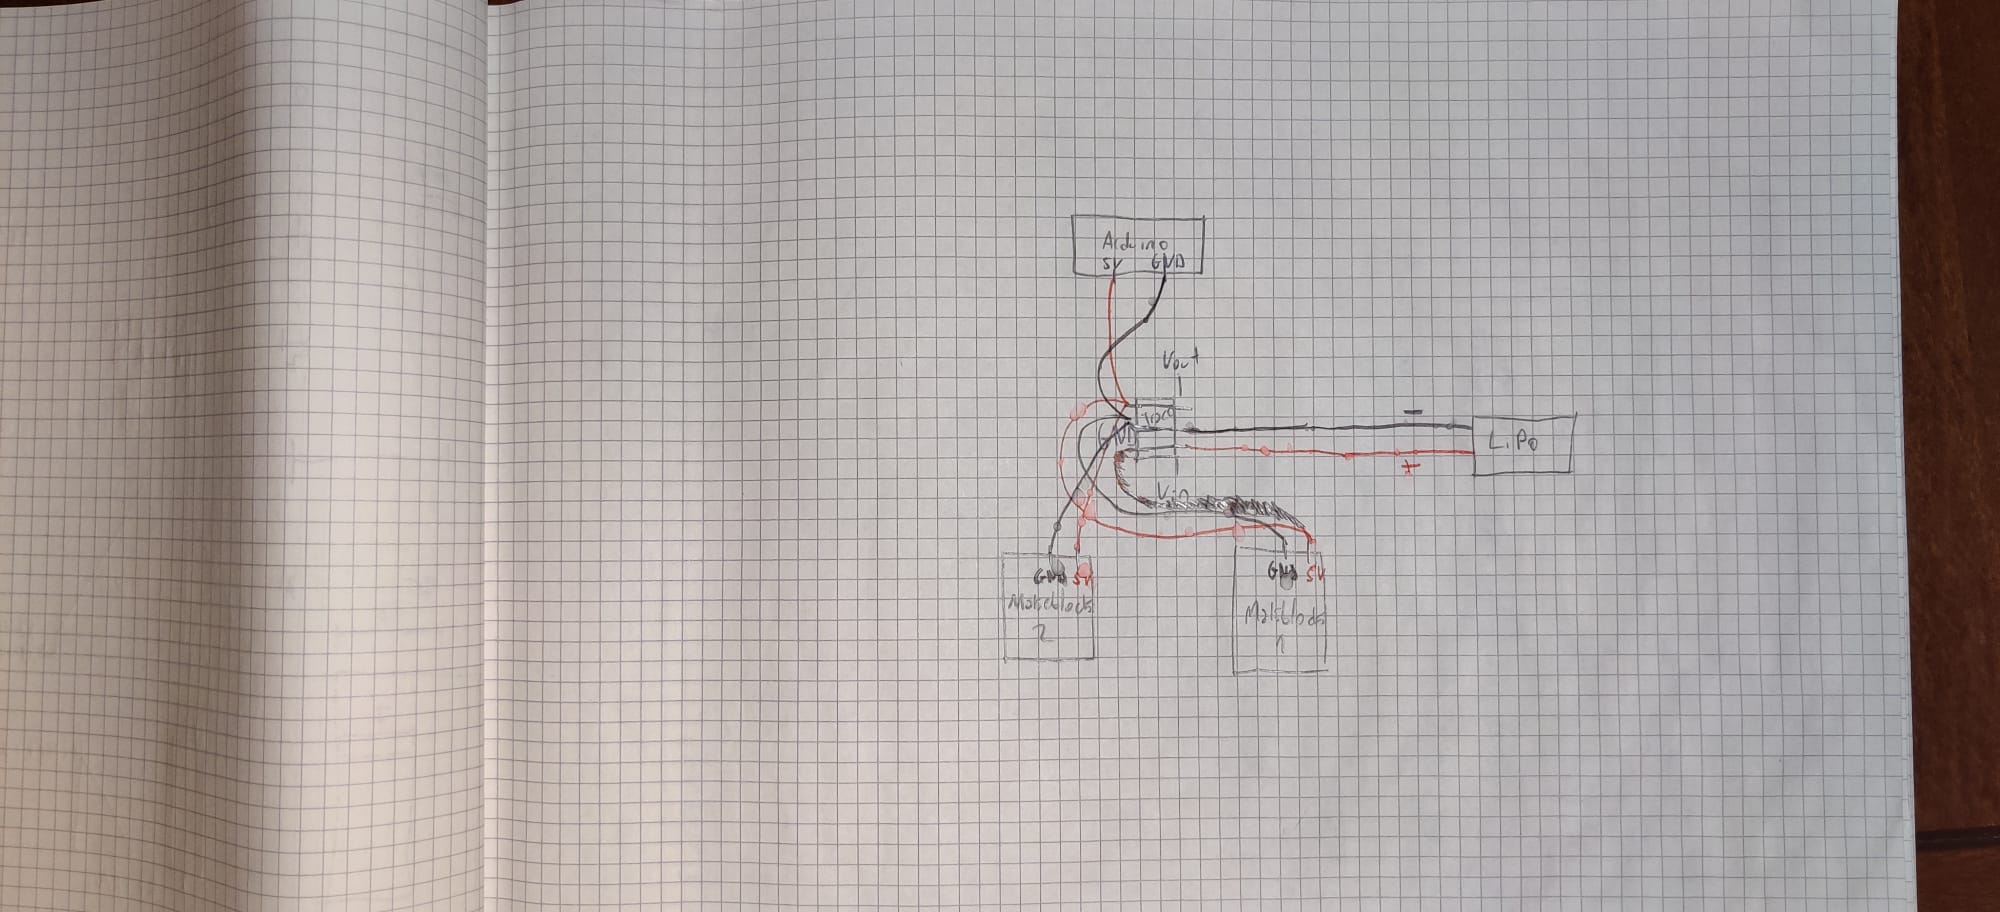 Arduino
5V GND
Vout
-
LiPo
+
Vin
GND 5V
Makeblock
2
GND 5V
Makeblock
1